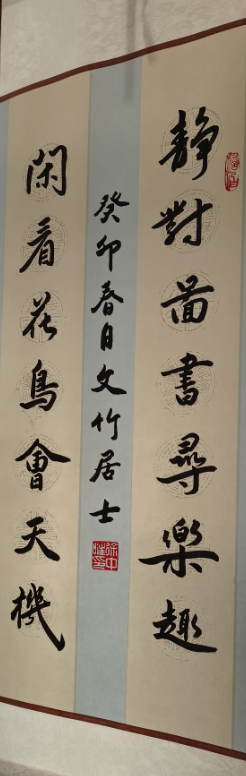 静對圖書尋樂趣
閑看花鳥會天機
癸卯春日文竹居士